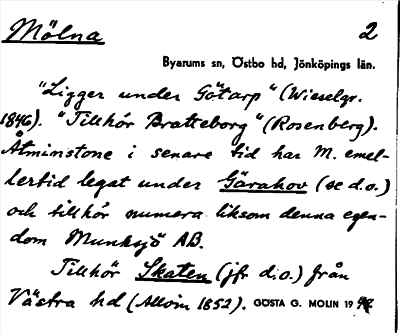 Mölna 2
Byarums sn, Östbo hd, Jönköpings län.
"Ligger under Götarp" (Wieselgr.
1846). "Tillhör Bratteborg" (Rosenberg).
Åtminstone i senare tid har M. emel-
lertid legat under Gärahov (se d.o.)
och tillhör numera liksom denna egen-
dom Munksjö AB.
Tillhör Skaten (jfr d.o.) från
Västra hd (Allvin 1852). GÖSTA G. MOLIN 1948.